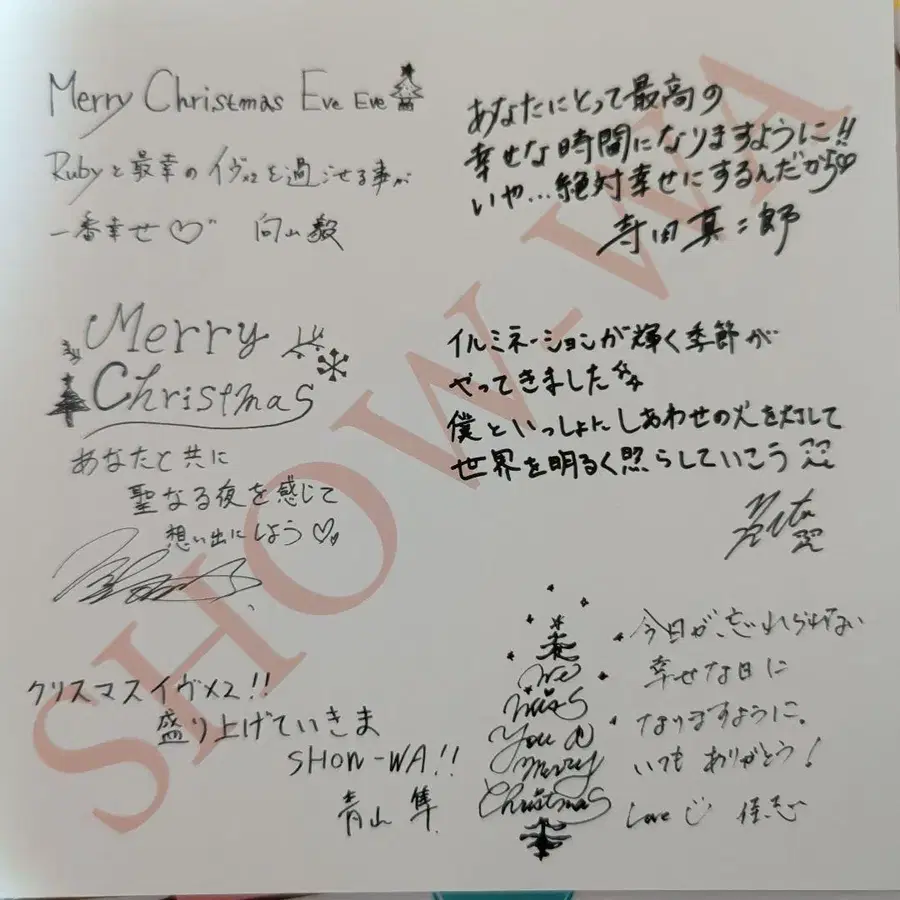 Merry Christmas Eve Eve
Rubyと最幸のイヴ×2を過ごせる事が
一番幸せ♡ 向山毅
あなたにとって最高の
幸せな時間になりますように!!
いや…絶対幸せにするんだから♡
寺田真二郎
Merry
Christmas
あなたと共に
聖なる夜を感じて
想い出にしよう♡
イルミネーションが輝く季節が
やってきました
僕といっしょにしあわせの火を灯して
世界を明るく照らしていこう
クリスマスイヴ×2!!
盛り上げていきま
SHOW-WA!!
青山隼
We
Wish
You a
Merry
Christmas
今日が、忘れられない
幸せな日に
なりますように。
いつも ありがとう!
Love 佳志
SHOW-WA